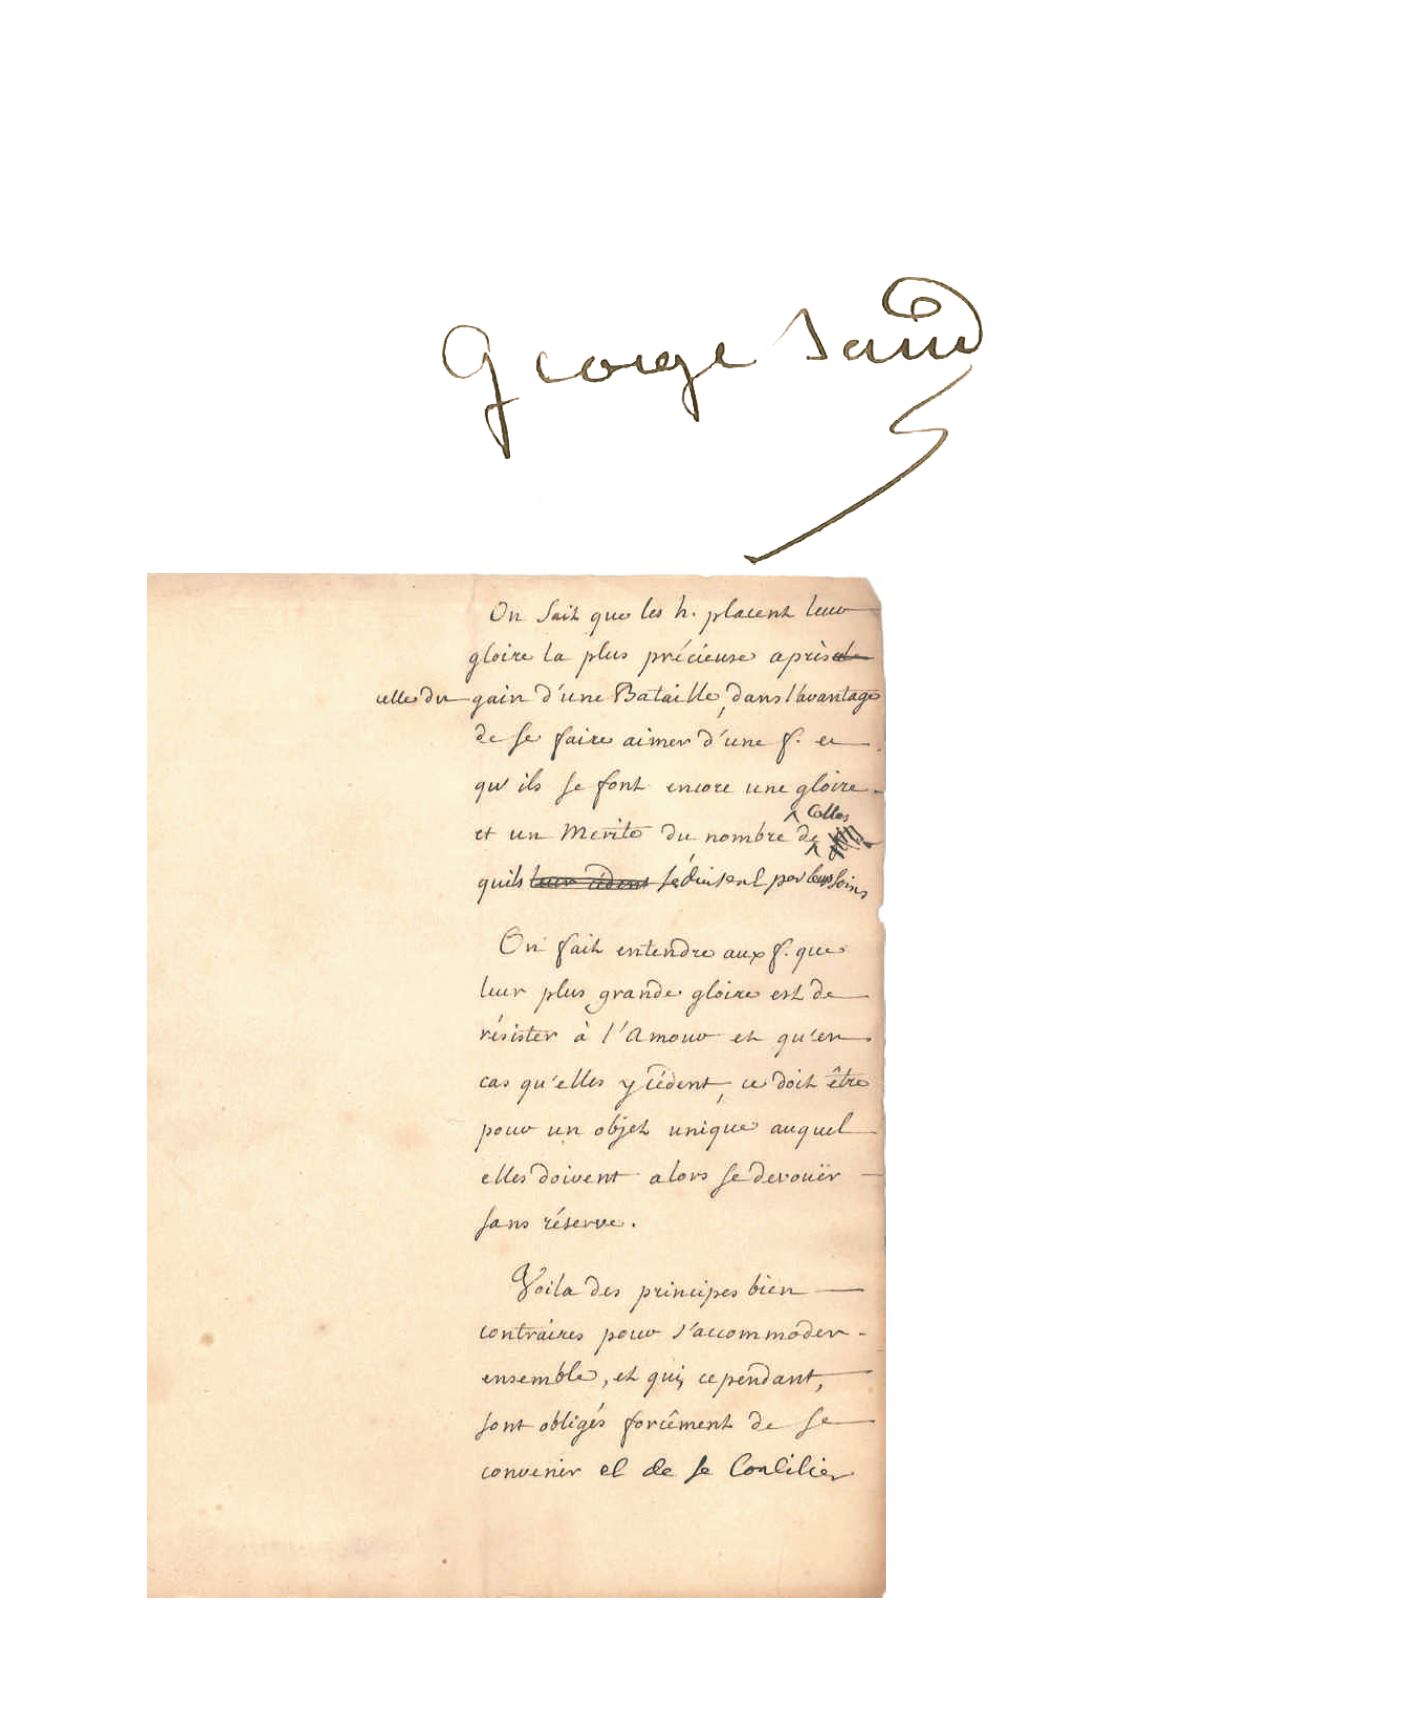 George Sand
On sait que les h. placent leur
gloire la plus précieuse après de
celle du gain d'une Bataille, dans l'avantage
de se faire aimer d'une f. et
qu'ils se font encore une gloire
et un Merite du nombre de celles
quils leur cèdent séduisent par leurs soins
On fait entendre aux f. que
leur plus grande gloire est de
résister à l'Amour et qu'en
cas qu'elles y cèdent, ce doit être
pour un objet unique auquel
elles doivent alors se devouër
sans réserve.
Voila des principes bien
contraires pour s'accommoder
ensemble, et qui, cependant,
sont obligés forcêment de se
convenir et de se Concilier